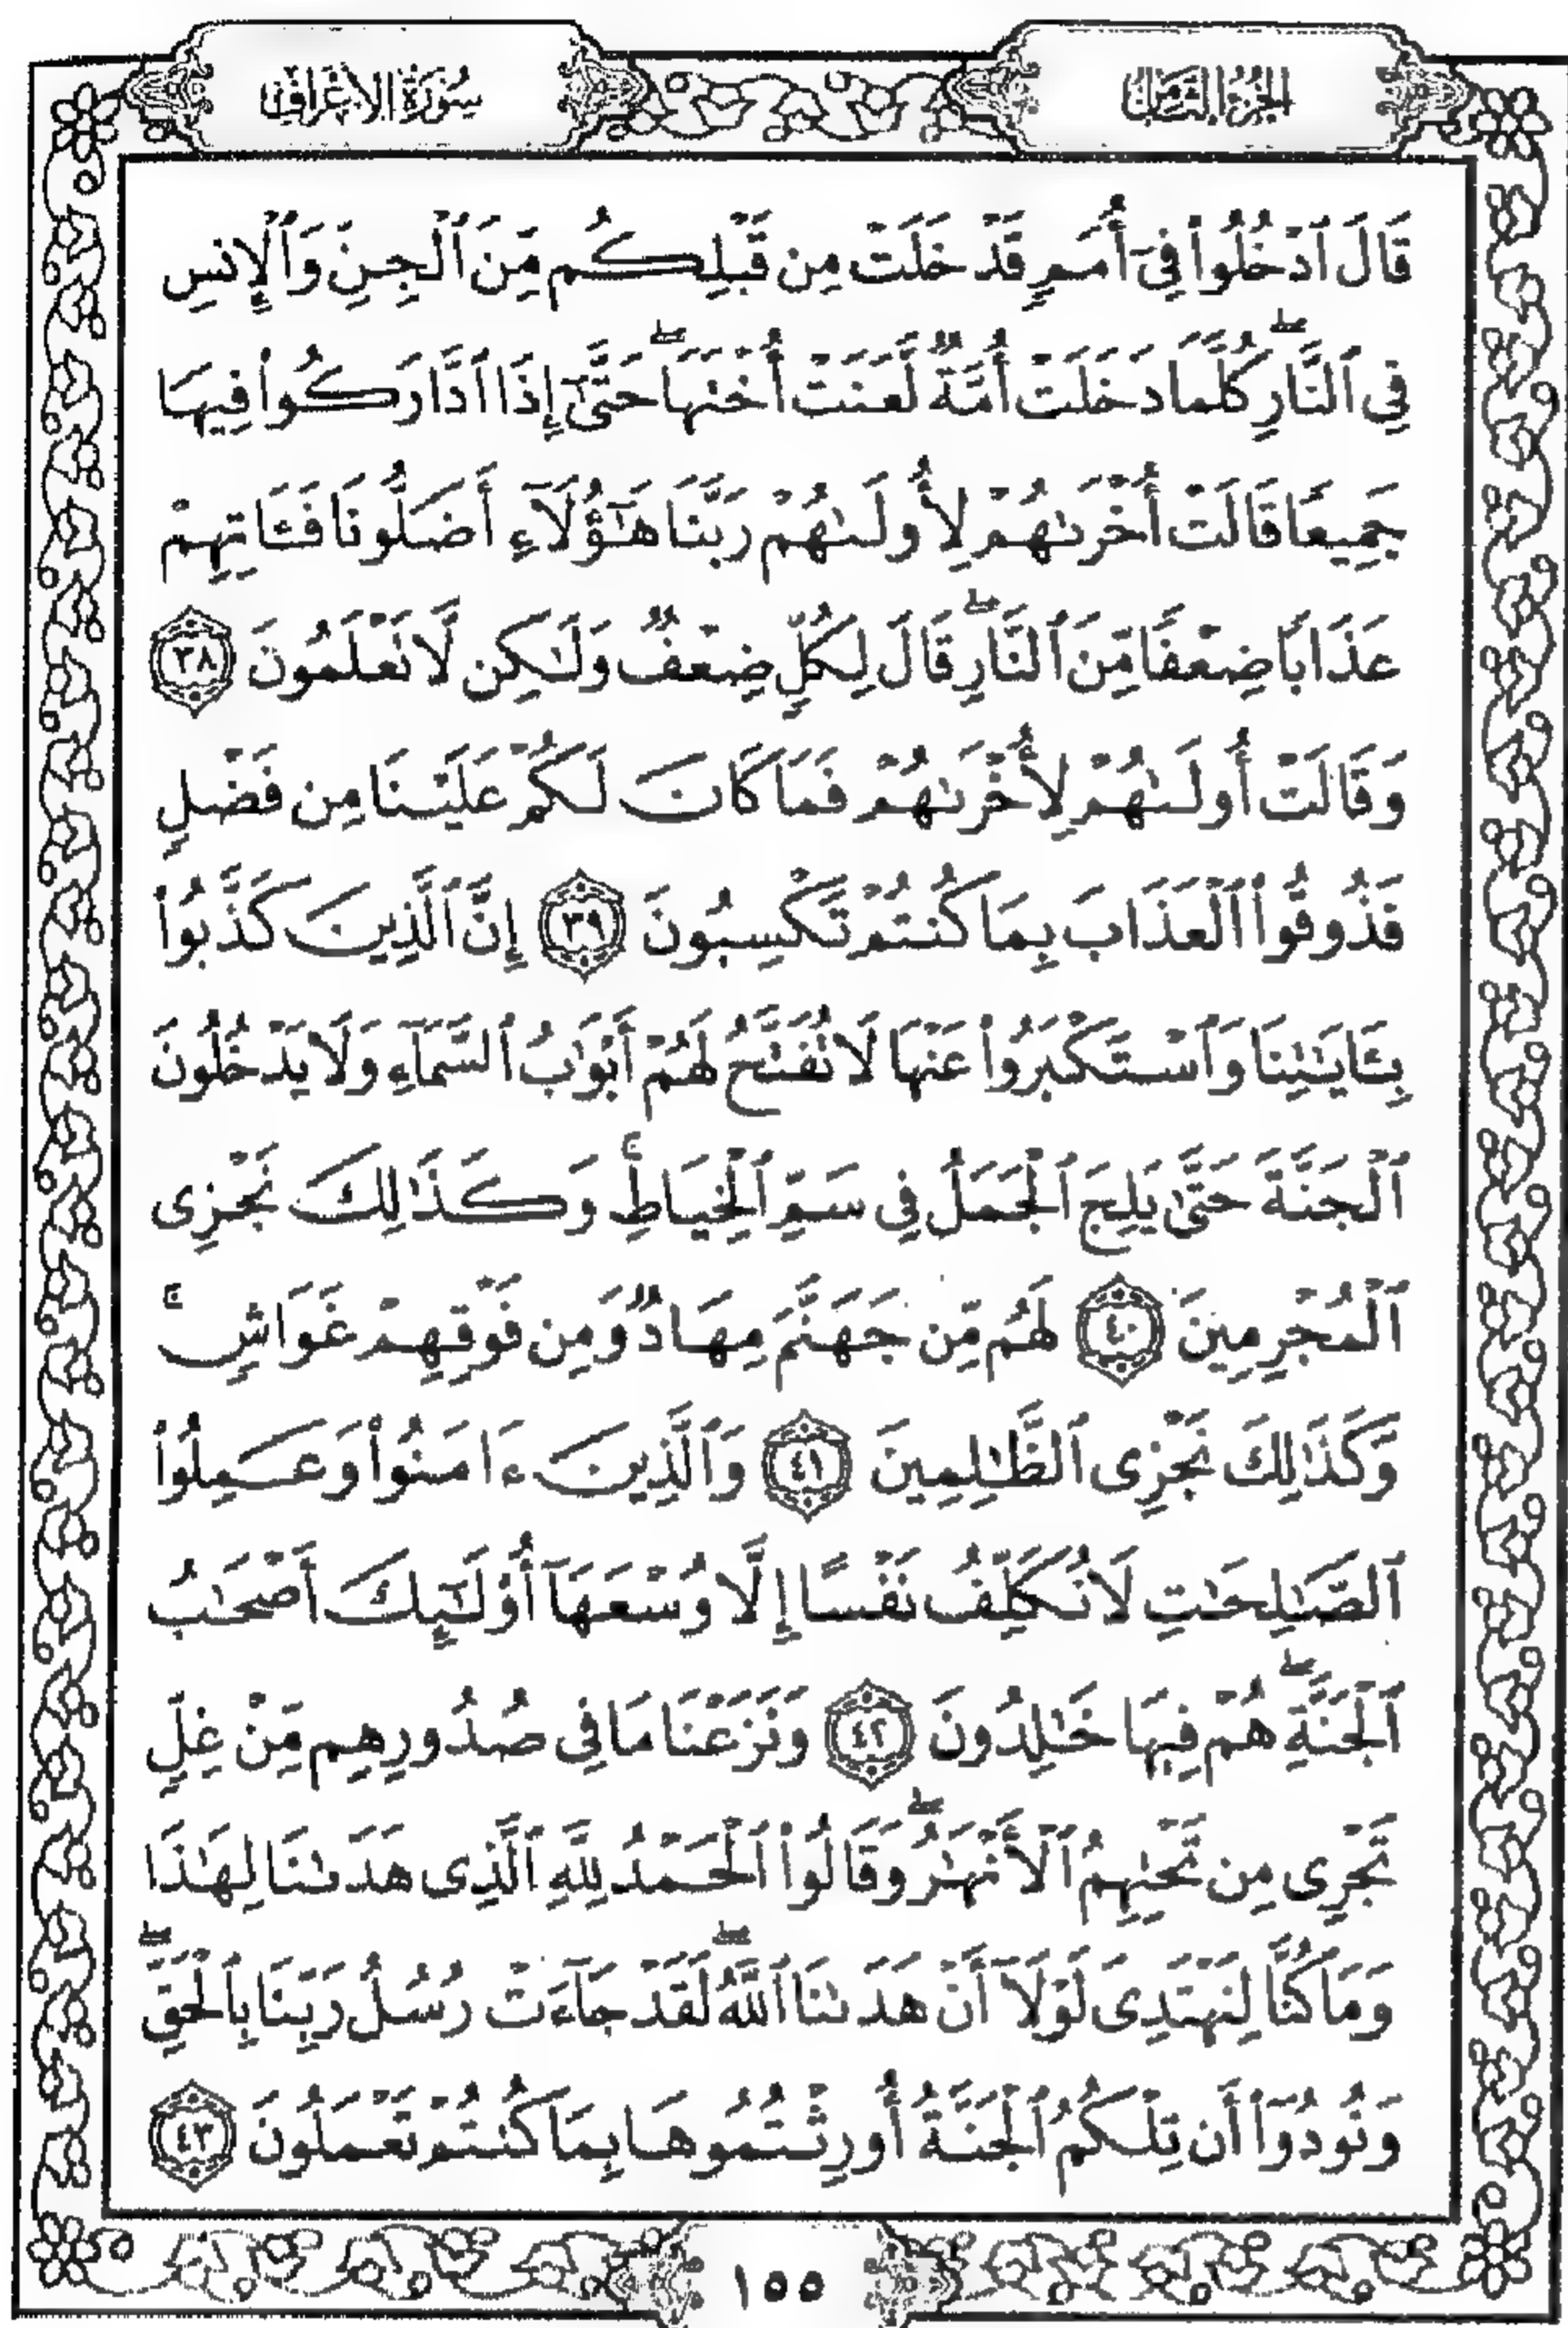 الجزء الثامن
سورة الأعراف
قَالَ ٱدْخُلُوا۟ فِىٓ أُمَمٍ قَدْ خَلَتْ مِن قَبْلِكُم مِّنَ ٱلْجِنِّ وَٱلْإِنسِ
فِى ٱلنَّارِ ۖ كُلَّمَا دَخَلَتْ أُمَّةٌ لَّعَنَتْ أُخْتَهَا ۖ حَتَّىٰٓ إِذَا ٱدَّارَكُوا۟ فِيهَا
جَمِيعًا قَالَتْ أُخْرَىٰهُمْ لِأُولَىٰهُمْ رَبَّنَا هَٰٓؤُلَآءِ أَضَلُّونَا فَـَٔاتِهِمْ
عَذَابًا ضِعْفًا مِّنَ ٱلنَّارِ ۖ قَالَ لِكُلٍّ ضِعْفٌ وَلَٰكِن لَّا تَعْلَمُونَ ٣٨
وَقَالَتْ أُولَىٰهُمْ لِأُخْرَىٰهُمْ فَمَا كَانَ لَكُمْ عَلَيْنَا مِن فَضْلٍ
فَذُوقُوا۟ ٱلْعَذَابَ بِمَا كُنتُمْ تَكْسِبُونَ ٣٩ إِنَّ ٱلَّذِينَ كَذَّبُوا۟
بِـَٔايَٰتِنَا وَٱسْتَكْبَرُوا۟ عَنْهَا لَا تُفَتَّحُ لَهُمْ أَبْوَٰبُ ٱلسَّمَآءِ وَلَا يَدْخُلُونَ
ٱلْجَنَّةَ حَتَّىٰ يَلِجَ ٱلْجَمَلُ فِى سَمِّ ٱلْخِيَاطِ ۚ وَكَذَٰلِكَ نَجْزِى
ٱلْمُجْرِمِينَ ٤٠ لَهُم مِّن جَهَنَّمَ مِهَادٌ وَمِن فَوْقِهِمْ غَوَاشٍ ۚ
وَكَذَٰلِكَ نَجْزِى ٱلظَّٰلِمِينَ ٤١ وَٱلَّذِينَ ءَامَنُوا۟ وَعَمِلُوا۟
ٱلصَّٰلِحَٰتِ لَا نُكَلِّفُ نَفْسًا إِلَّا وُسْعَهَآ أُو۟لَٰٓئِكَ أَصْحَٰبُ
ٱلْجَنَّةِ ۖ هُمْ فِيهَا خَٰلِدُونَ ٤٢ وَنَزَعْنَا مَا فِى صُدُورِهِم مِّنْ غِلٍّ
تَجْرِى مِن تَحْتِهِمُ ٱلْأَنْهَٰرُ ۖ وَقَالُوا۟ ٱلْحَمْدُ لِلَّهِ ٱلَّذِى هَدَىٰنَا لِهَٰذَا
وَمَا كُنَّا لِنَهْتَدِىَ لَوْلَآ أَنْ هَدَىٰنَا ٱللَّهُ ۖ لَقَدْ جَآءَتْ رُسُلُ رَبِّنَا بِٱلْحَقِّ ۖ
وَنُودُوٓا۟ أَن تِلْكُمُ ٱلْجَنَّةُ أُورِثْتُمُوهَا بِمَا كُنتُمْ تَعْمَلُونَ ٤٣
١٥٥